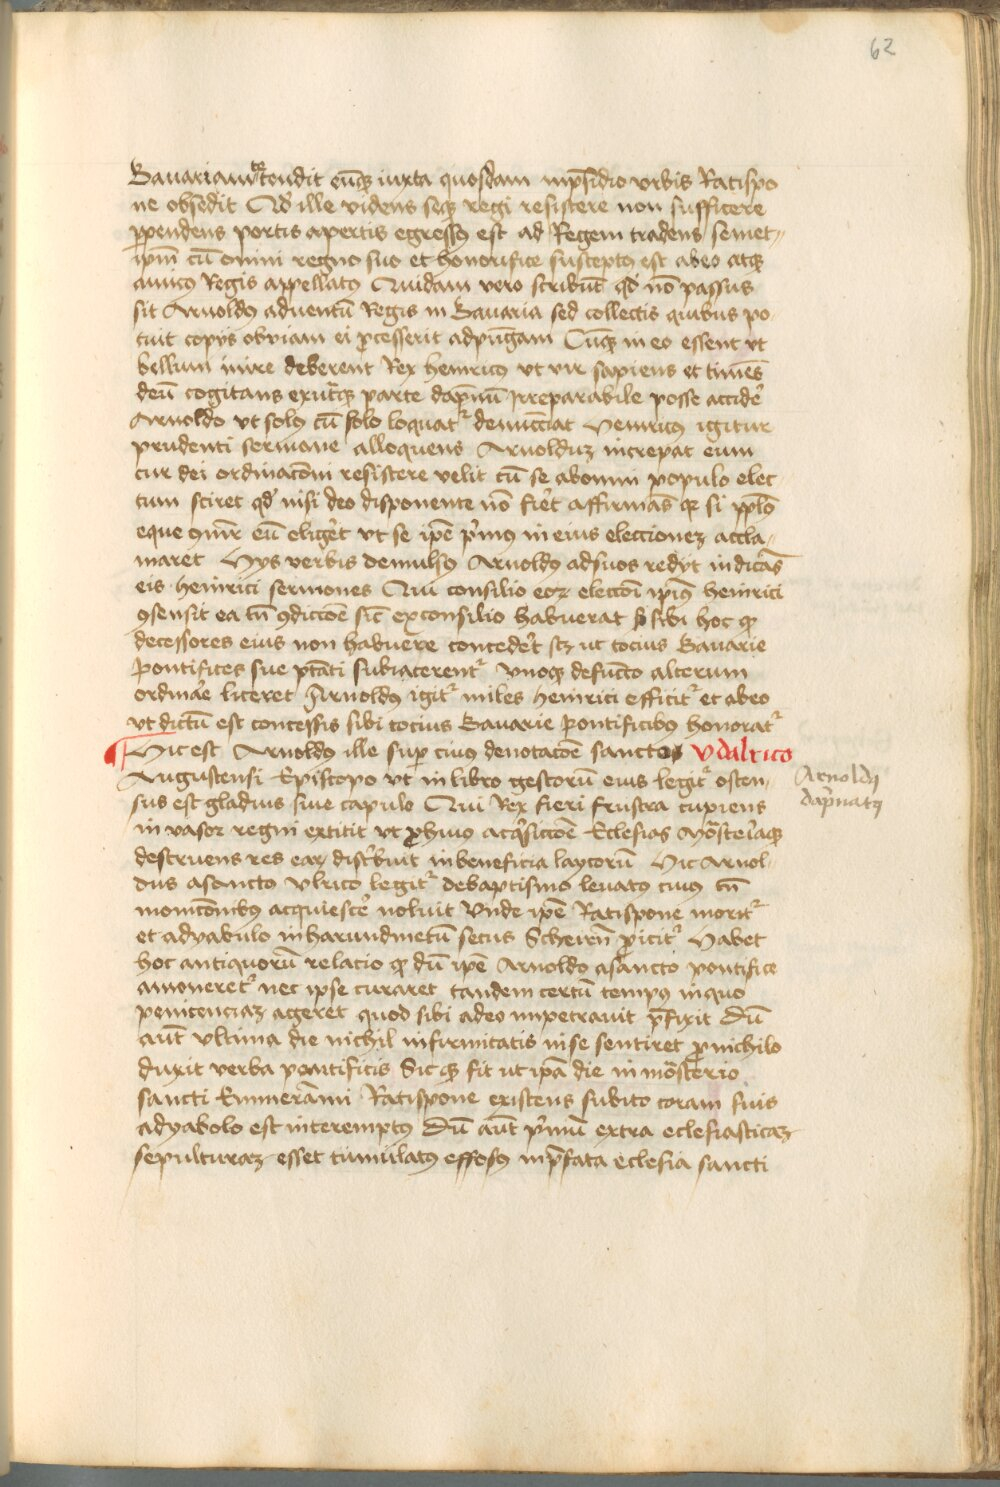 62
Bavariam tetendit eūq iuxta quosdam inp̄sidio vrbis Ratispo
ne obsedit At ille videns seq regi resistere non sufficere
ꝑpendens portis apertis egressus est ad Regem tradens semet
ipm̄ cū omni regno suo et honorifice susceptus est abeo atq
amicus Regis appellatus Quidam vero scribūt qd nō passus
sit Arnoldus adventū Regis in Bavaria sed collectis quibus po
tuit copijs obviam ei ꝓcesserit adpugnam Cūq in eo essent vt
bellum inire deberent Rex heinricus vt vir sapiens et timēs
deū cogitans exutq parte dapnū irreparabile posse accidēr
Arnoldo vt solus cū solo loquatr denuncciat Heinricus igitur
prudenti sermone alloquens Arnoldum increpat eum
cur dei ordinacōni resistere velit cū se abomni populo elec
tum sciret qd nisi deo disponente nō fiēt affirmās qr si ppl̄s
eque eū eligēt vt se ipē p̄mus in eius eleccionem accla
maret Hys verbis demulsus Arnoldus adsuos redyt indicās
eis heinrici sermones Qui consilio eorum eleccōi ipīus heinrici
ꝯsensit ea tn̄ ꝯdiccōe sic exconsilio habuerat sibi hoc q
decessores eius non habuere concedēt scz ut tocius Bavarie
pontifices sue ptāti subiacerentr vnoq defuncto alterum
ordināre liceret Arnoldus igitr miles heinrici efficitr et abeo
vt dictū est concessis sibi tocius Bavarie pontificibus honoratr
Hic est Arnoldus ille sup̄ cuius denotacōe sancto Vdalrico
Augustensi Episcopo vt in libro gestorū eius legitr osten
sus est gladius sine capulo Qui Rex fieri frustra cupiens
in vasor regni extitit vt ꝓ huius acq̄siccōe Eclesias Mōsteriaq
destruens res earum distribuit in beneficia laycorū Hic Arnol
dus asancto Vlrico legitr debaptismo levatus cuius tn̄
monicōnibus acquiescēr noluit Vnde ipē Ratispone moritr
et adyabulo in harundinetū secus Scheirn̄ ꝓicitr Habet
hoc antiquorū relacio q dū ipē Arnoldus asancto pontifice
amoneretr nec ipse curaret tandem certū tempus inquo
penicenciam ageret quod sibi adeo impetravit p̄fixit Dū
aut̄ vltima die nichil infirmitatis in se sentiret ꝓ nichilo
duxit verba pontificis Sicq fit ut ipā die in mōsterio
sancti Emmerāmi Ratispone existens subito coram suis
adyabolo est interemptus Dū aut̄ p̄mū extra eclesiasticam
sepulturam esset tumulatus effosus inp̄fata eclesia sancti
Arnoldus
dap̄natus